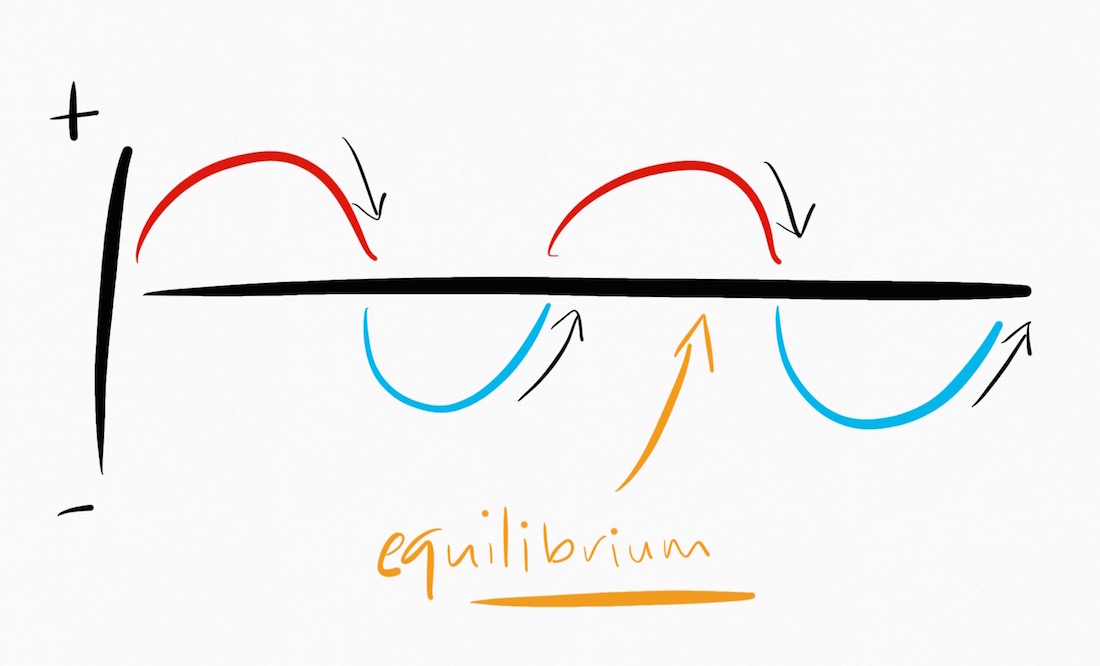 +
-
equilibrium